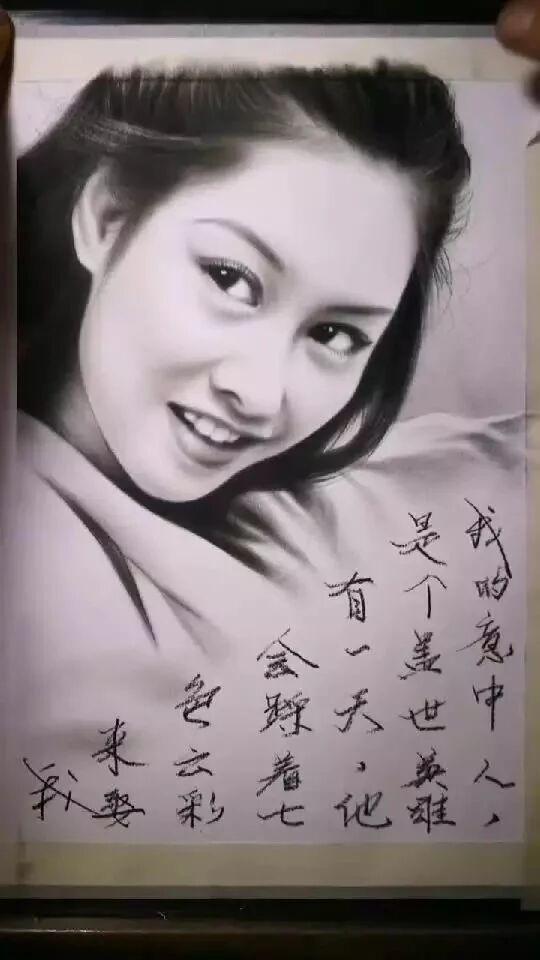 我的意中人，
是个盖世英雄
有一天，他
会踩着七
色云彩
来娶
我